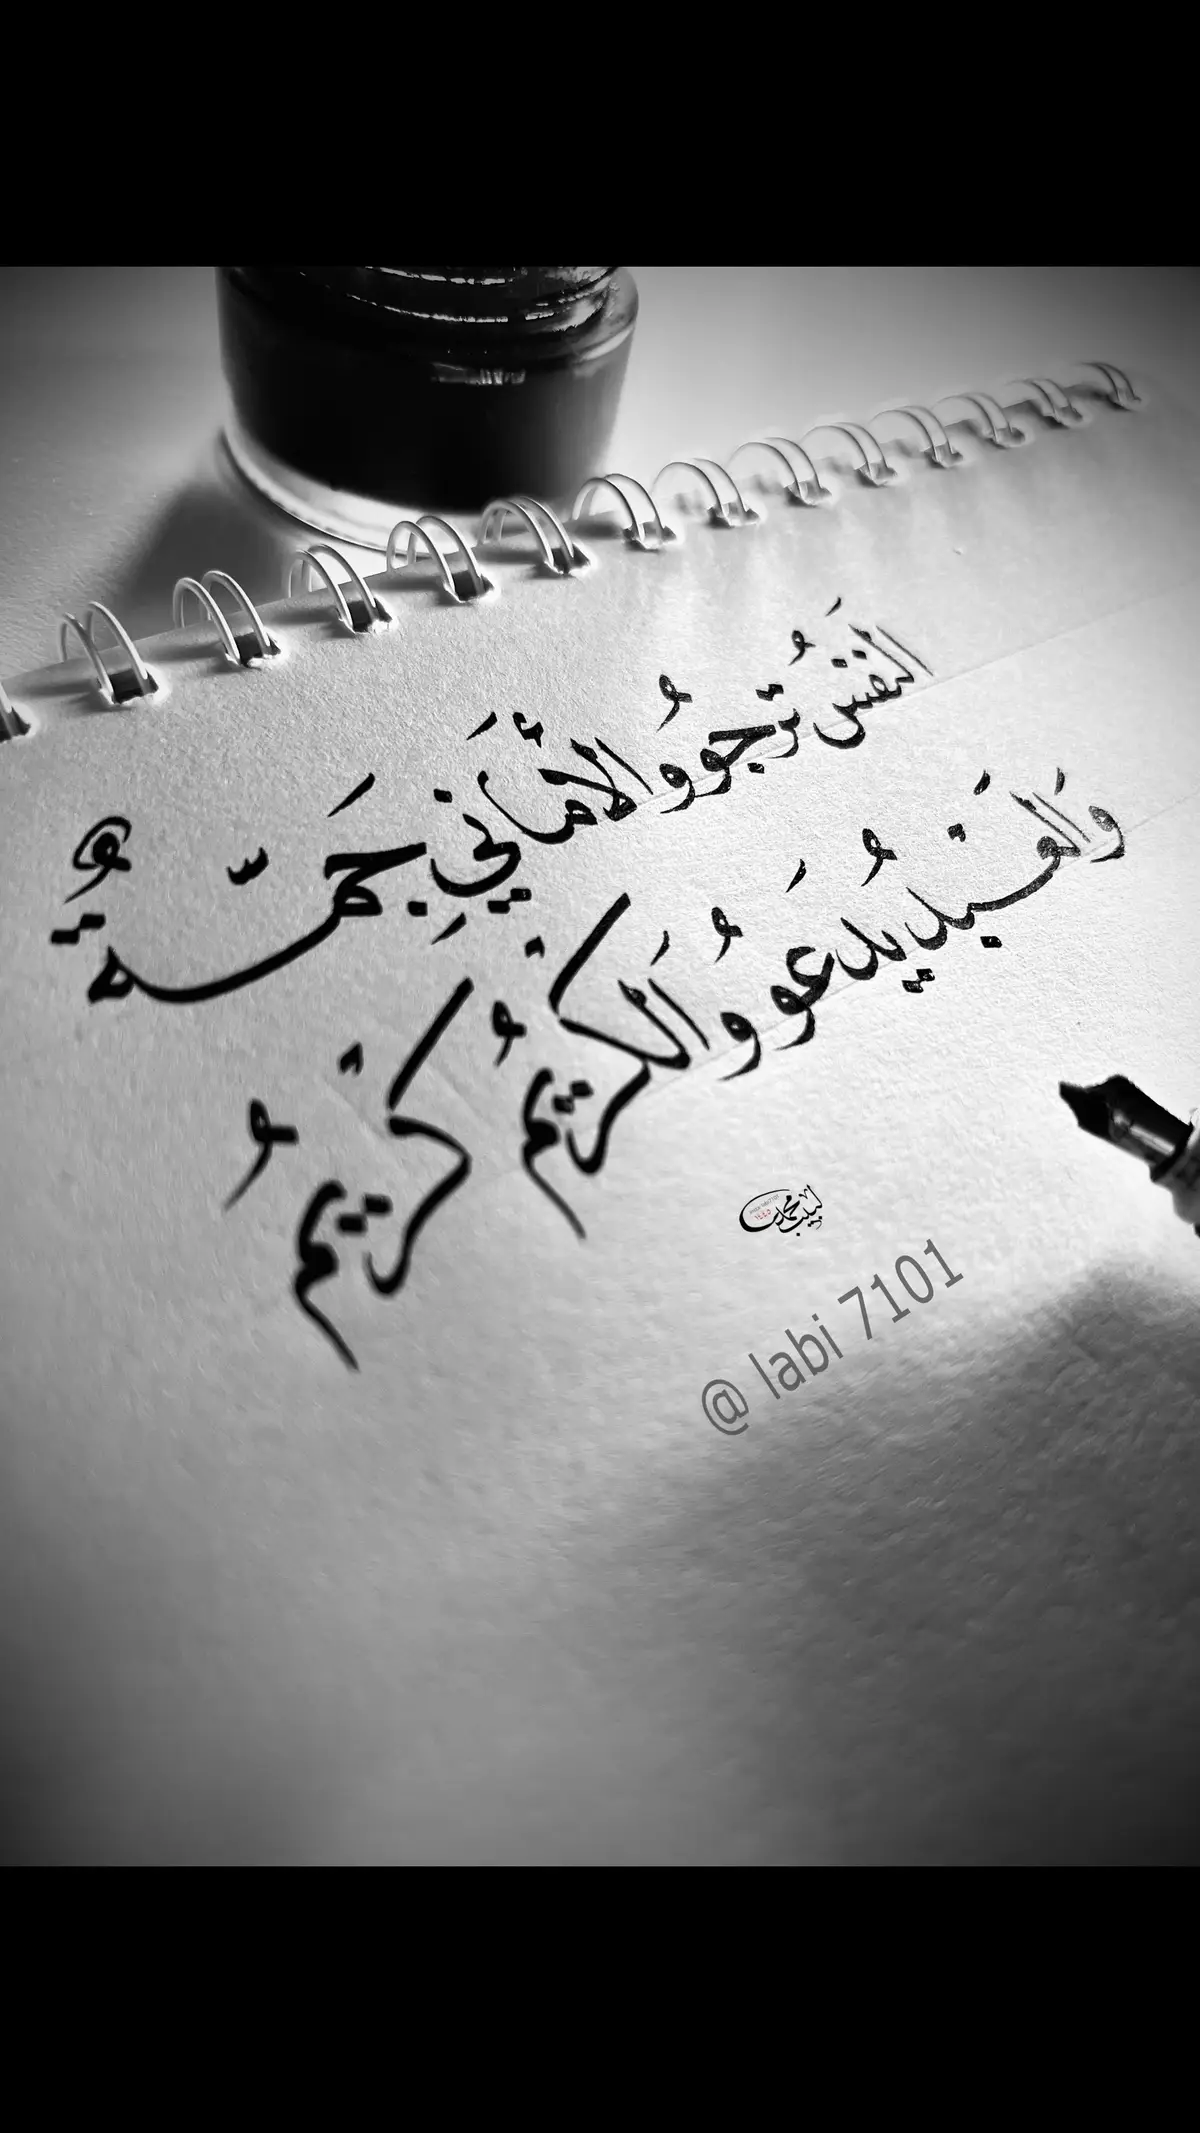 النفسُ ترجوو الأمَانيِ جَمّةٌ
وَالعَبْد يدعوو الكْريمُ كْريمُ
لبيب محمد
١٤٤٥
@ labi 7101